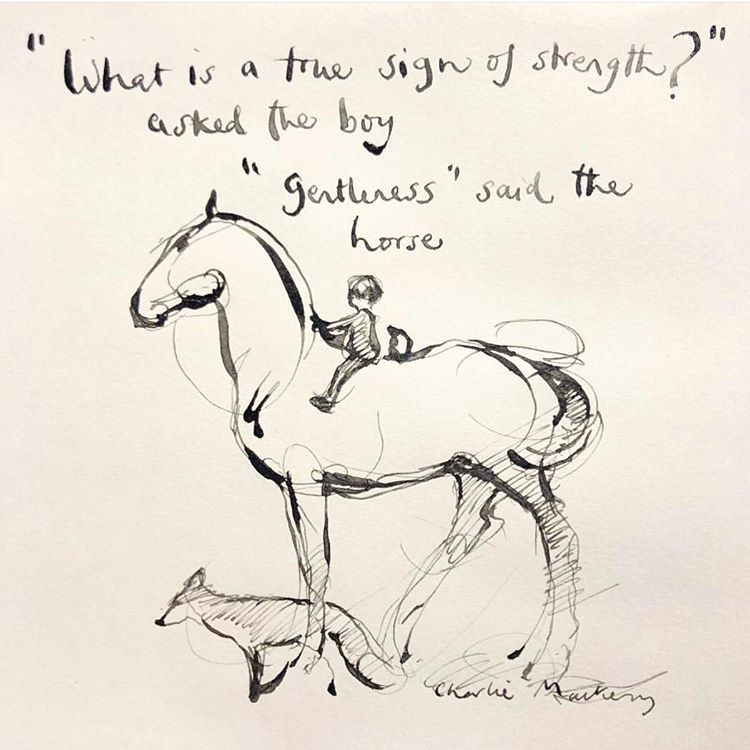 "What is a true sign of strength?"
asked the boy
"gentleness" said the
horse
Charlie Mackesy